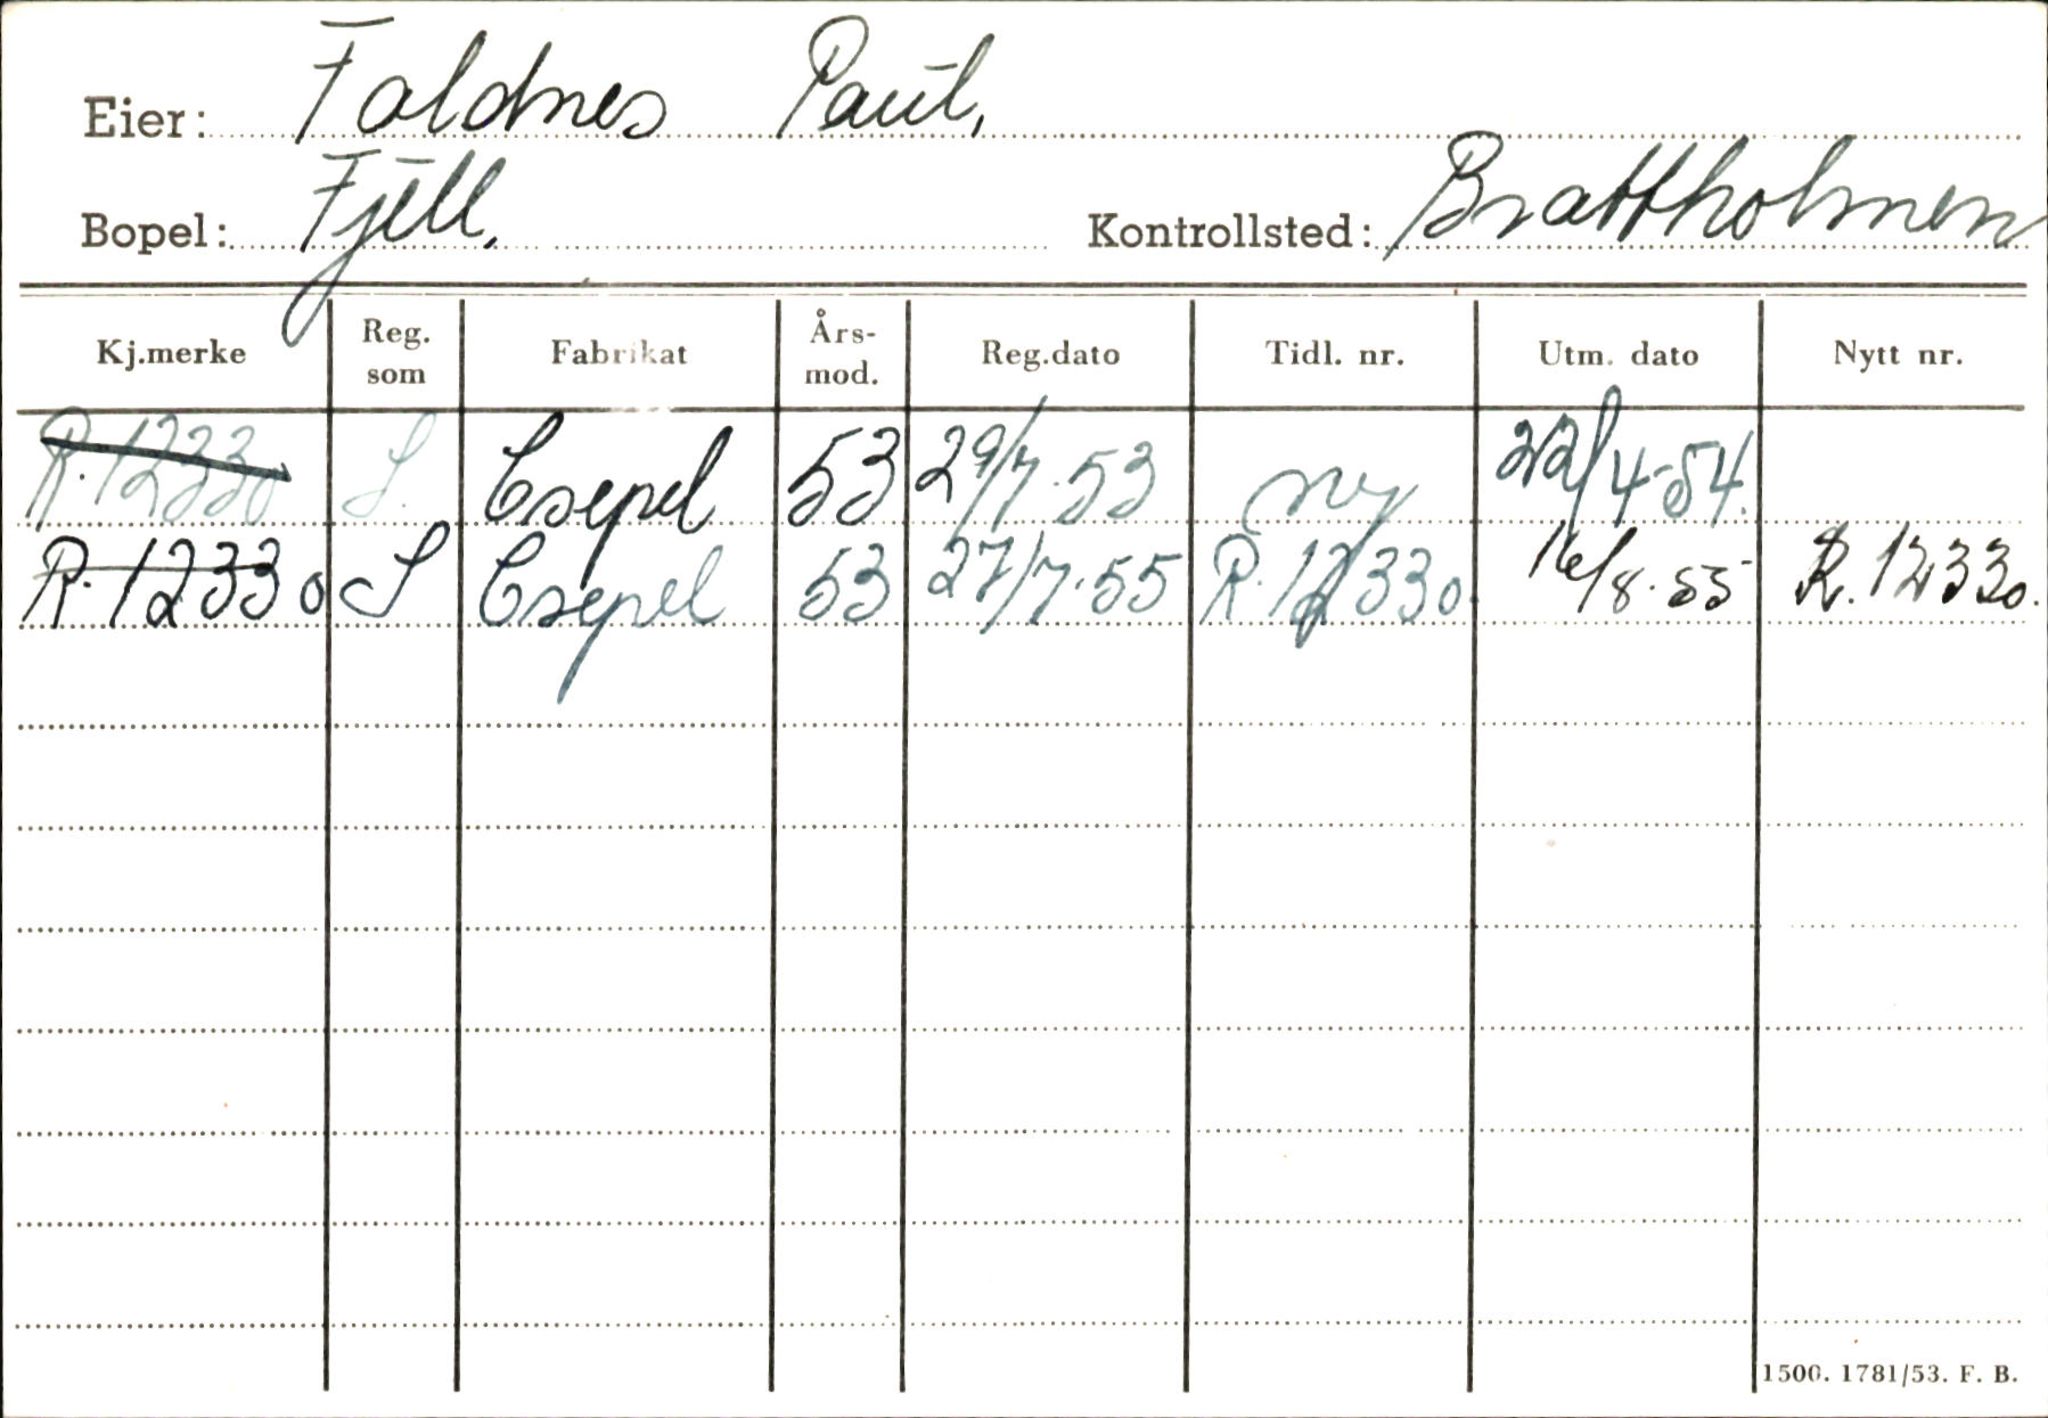 Eier: Foldnes Paul.
Bopel: Fjell. Kontrollsted: Brattholmen
Kj.merke Reg. som Fabrikat Års-mod. Reg.dato Tidl. nr. Utm. dato Nytt nr.
R.12330 S. Csepel 53 29/7.53 ny 22/4-54.
R.12330 S Csepel 53 27/7.55 R.12330. 16/8.55 R.12330.
1500. 1781/53. F. B.